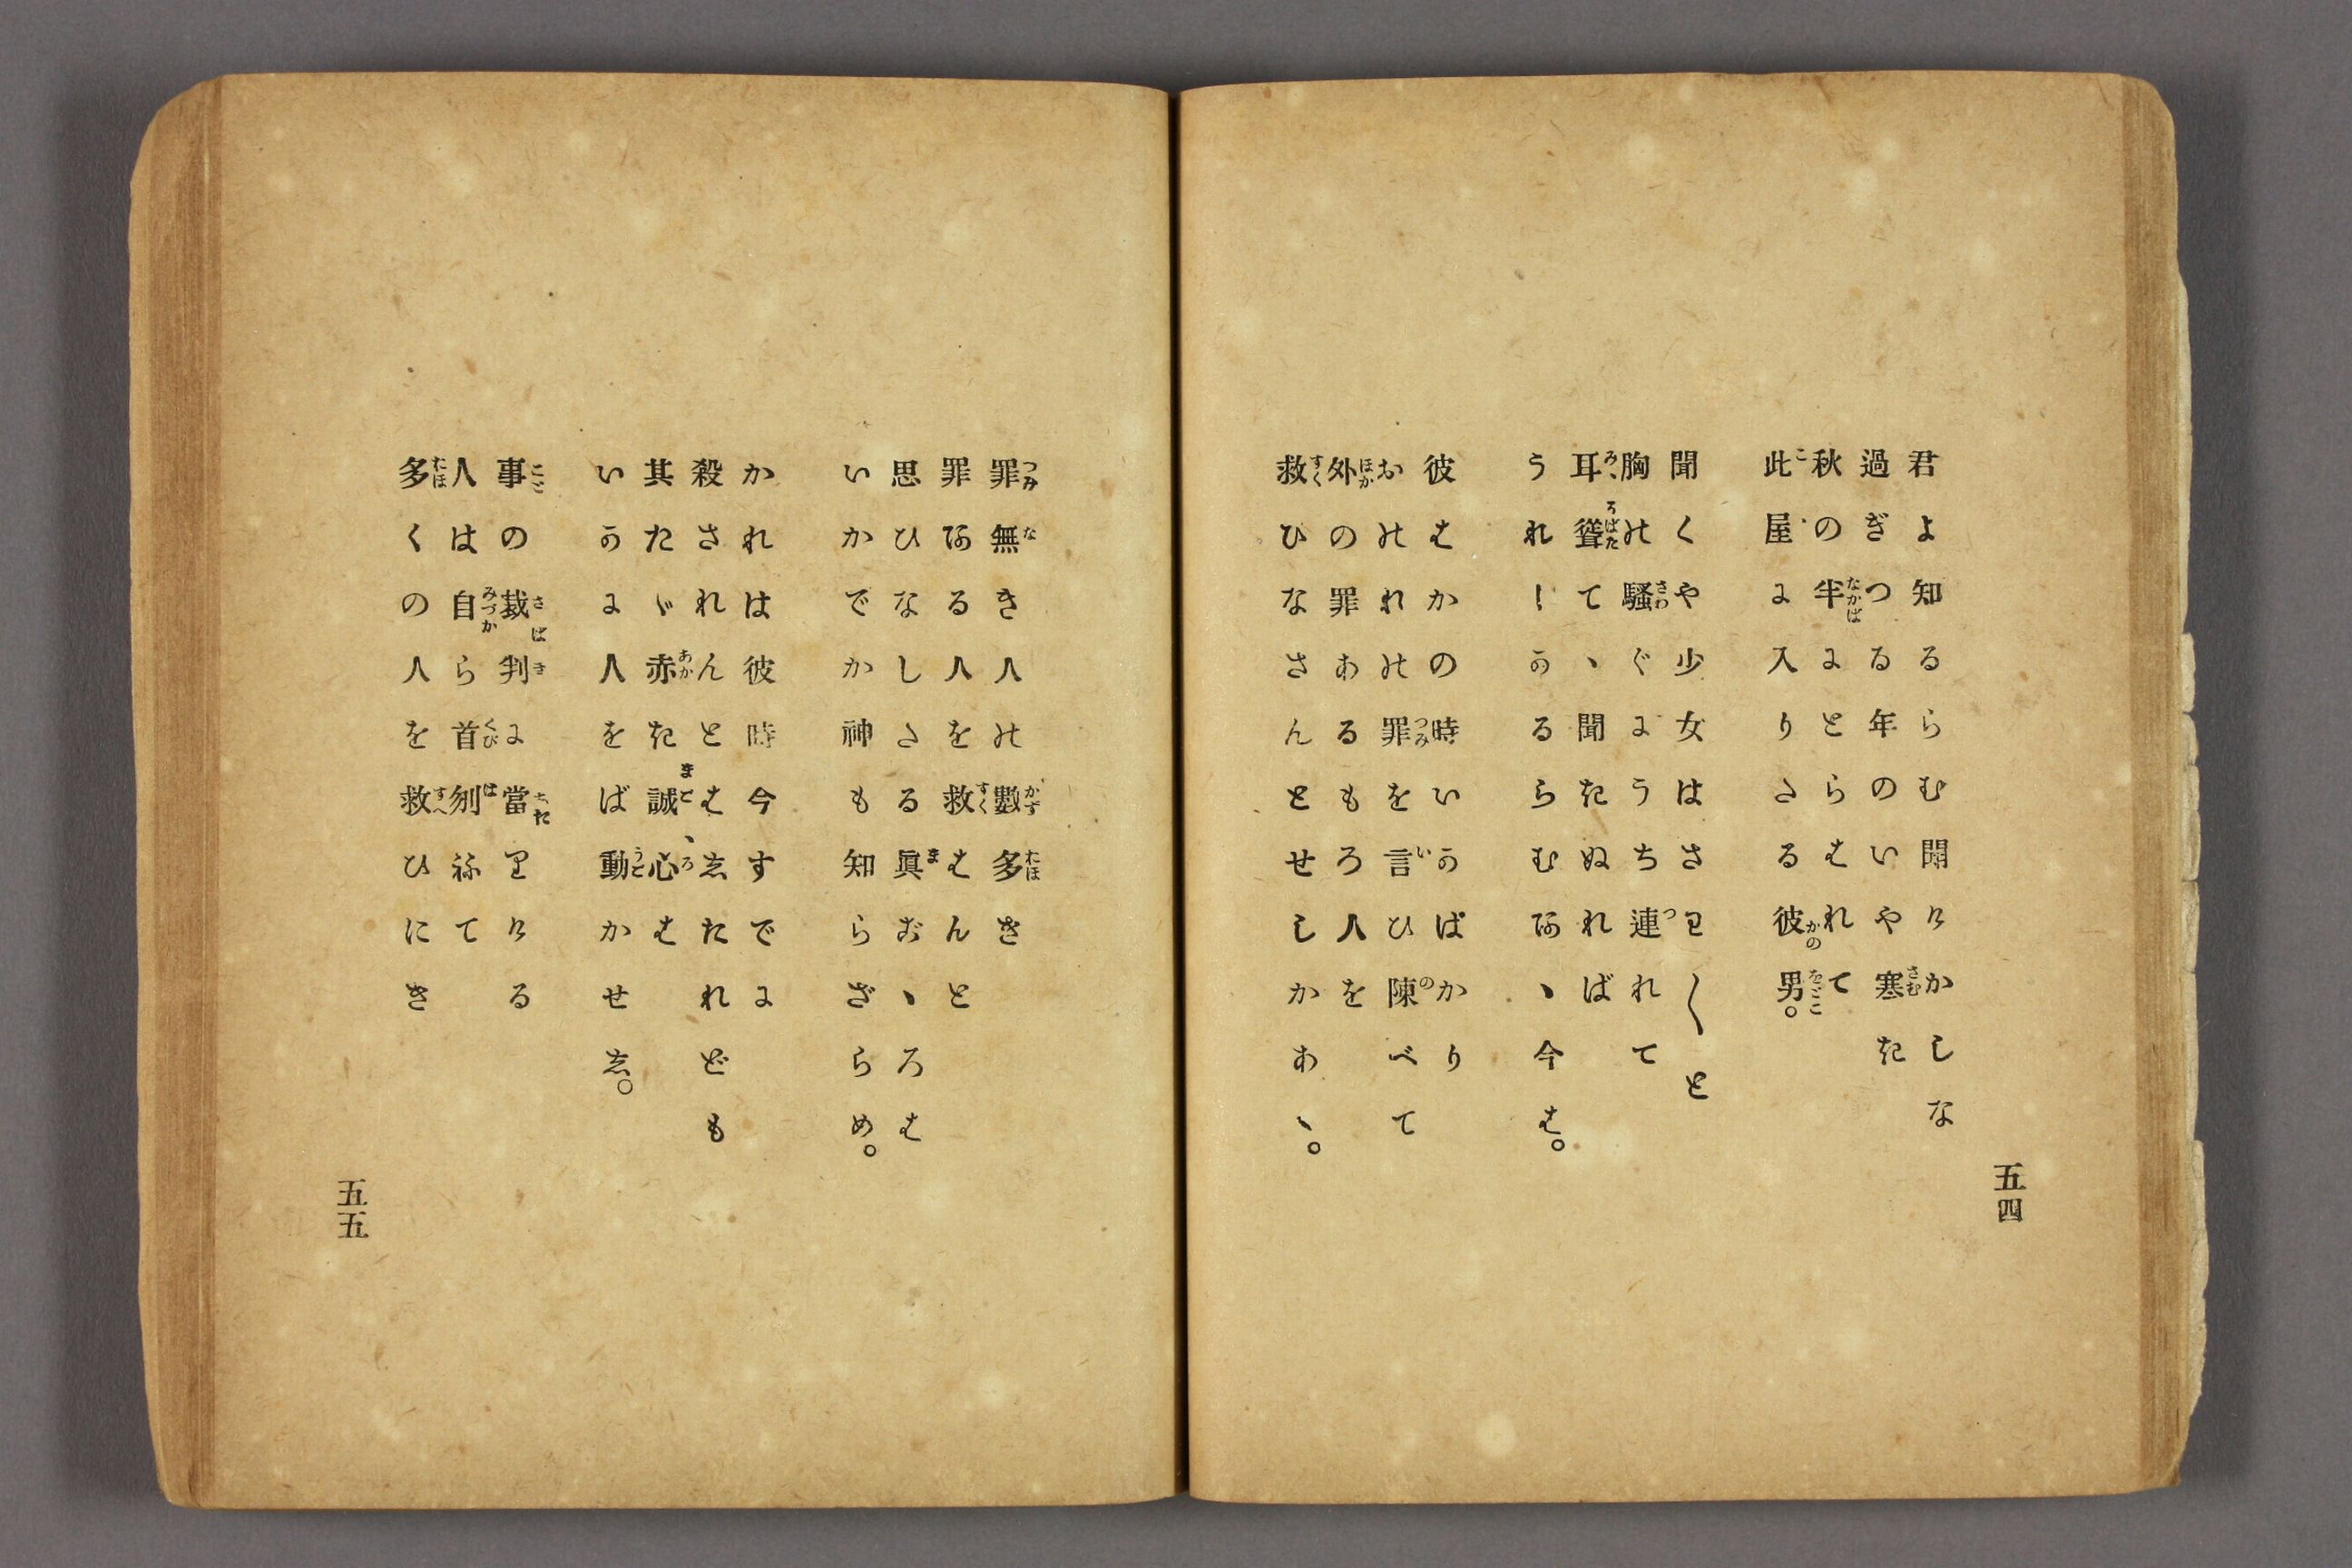 君よ知るらむ聞けかしな
過ぎつる年のいや寒き
秋の半にとらはれて
此屋に入りたる彼男。
聞くや少女はさわ〱と
胸の騒ぐにうち連れて
耳聳てゝ聞きぬれば
うれしかるらむあゝ今は。
彼はかの時いかばかり
おのれの罪を言ひ陳べて
外の罪あるもろ人を
救ひなさんとせしかあゝ。
五四
罪無き人の數多き
罪ある人を救はんと
思ひなしたる眞こゝろは
いかでか神も知らざらめ。
かれは彼時今すでに
殺されんとはしたれども
其たゞ赤き誠心は
いかに人をば動かせし。
事の裁判に當りける
人は自ら首刎ねて
多くの人を救ひにき
五五